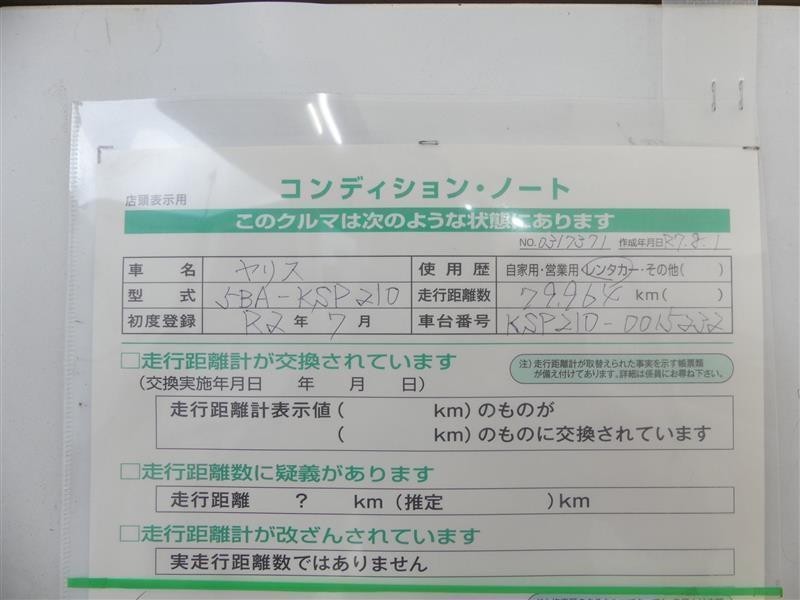 コンディション・ノート
店頭表示用
このクルマは次のような状態にあります
NO. 0317371 作成年月日 R7.8.1
車名 ヤリス 使用歴 自家用・営業用・レンタカー・その他( )
型式 5BA-KSP210 走行距離数 79,964 km( )
初度登録 R2年 7月 車台番号 KSP210-0015232
□走行距離計が交換されています
(交換実施年月日 年 月 日)
注)走行距離計が取替えられた事実を示す帳票類
が備え付けてあります。詳細は係員にお尋ね下さい。
走行距離計表示値( km)のものが
( km)のものに交換されています
□走行距離数に疑義があります
走行距離 ? km(推定 )km
□走行距離計が改ざんされています
実走行距離数ではありません